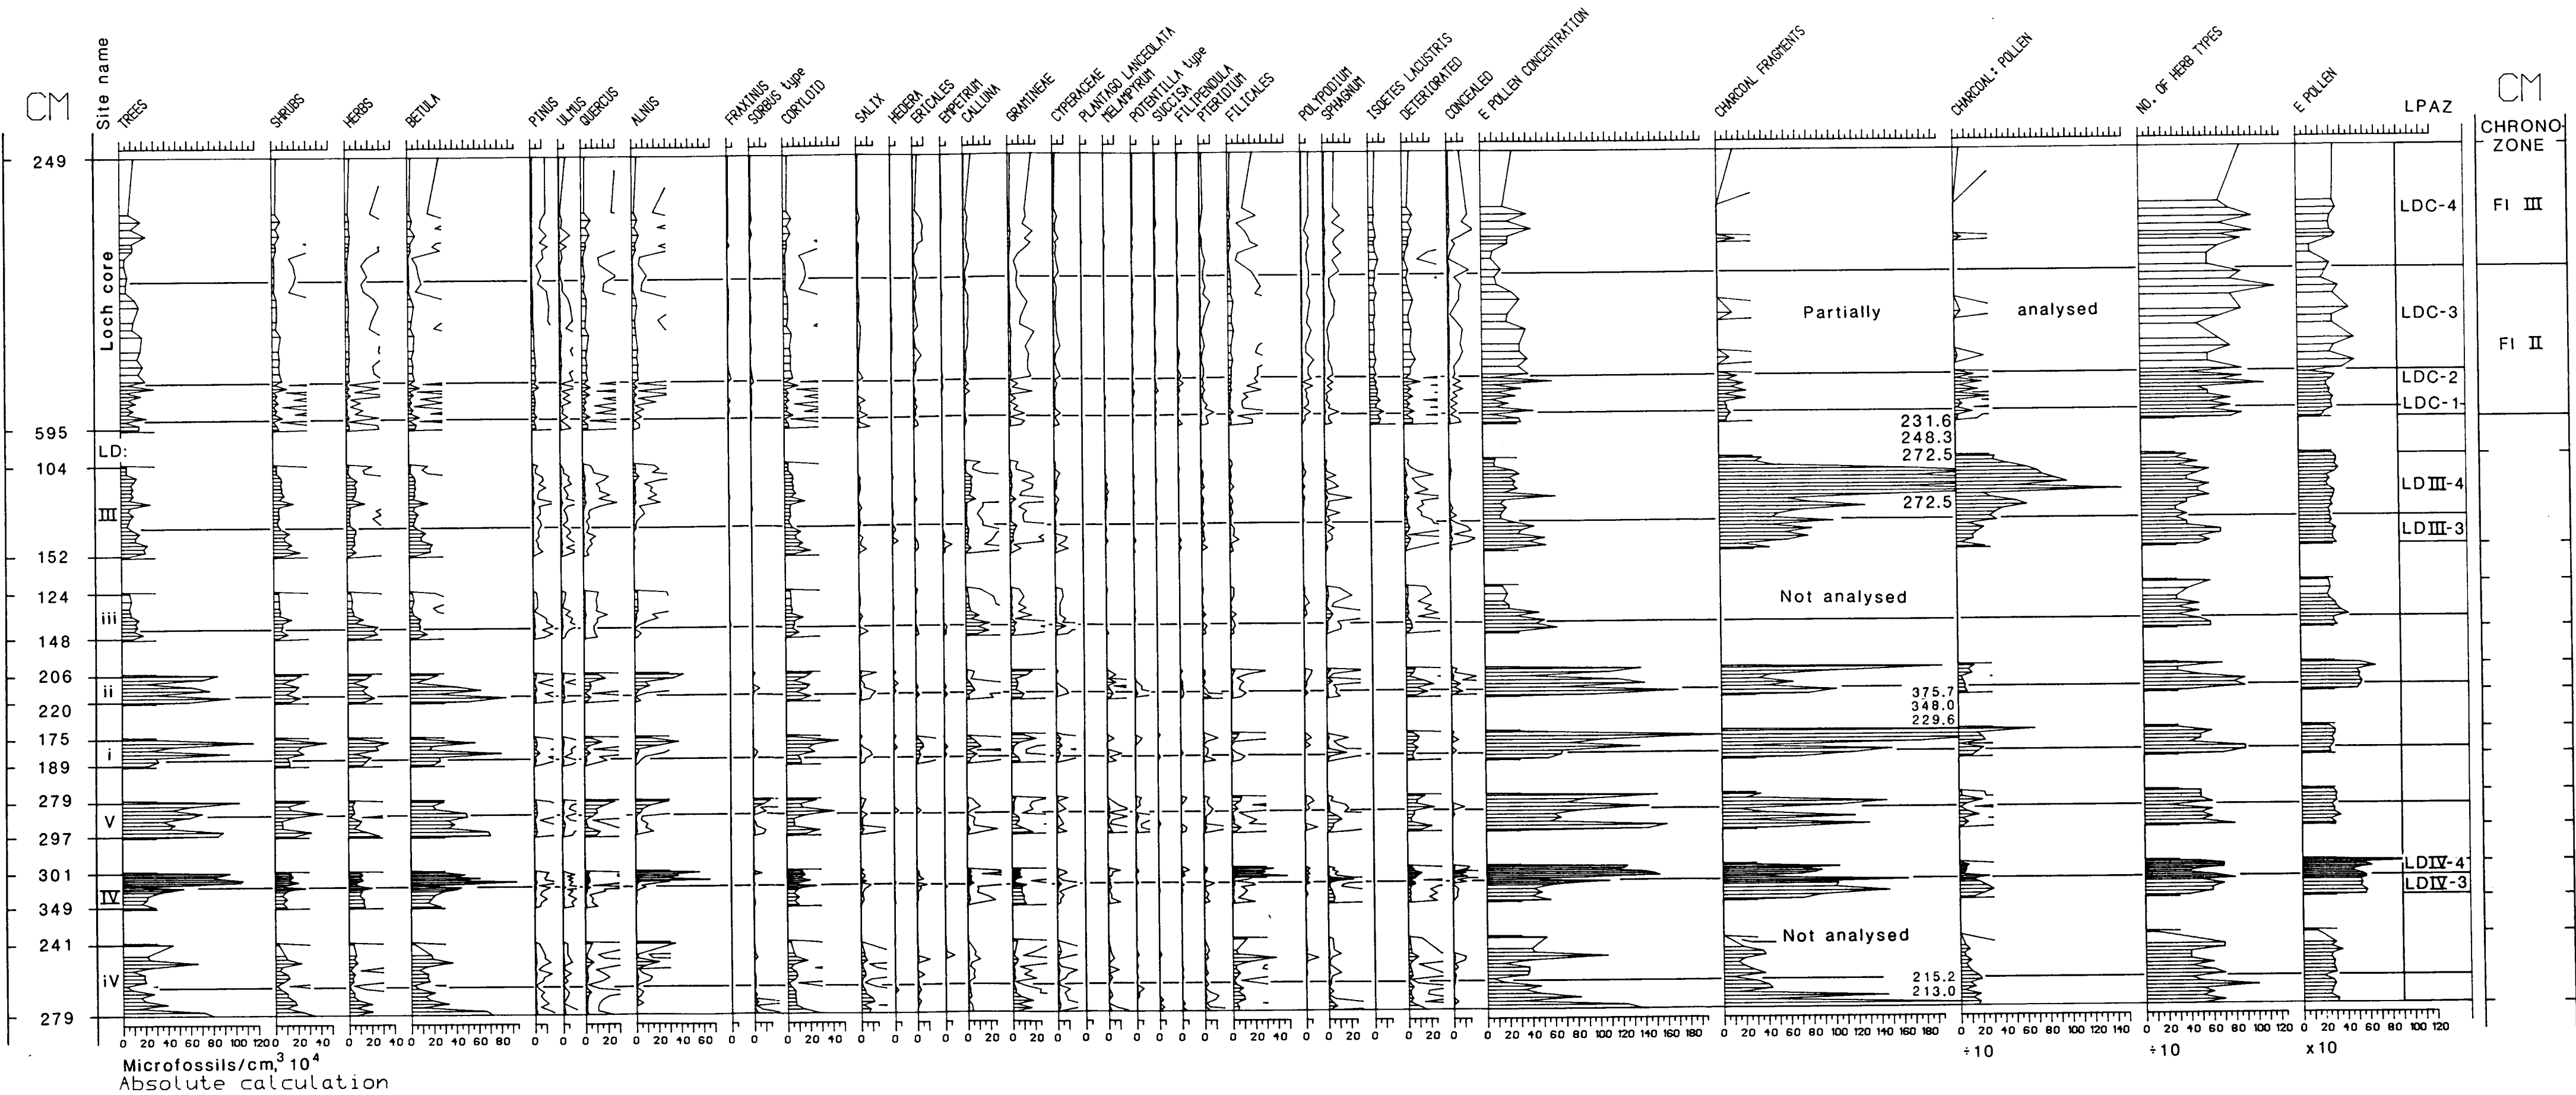 CM
Site name
TREES
SHRUBS
HERBS
BETULA
PINUS
ULMUS
QUERCUS
ALNUS
FRAXINUS
SORBUS type
CORYLOID
SALIX
HEDERA
ERICALES
EMPETRUM
CALLUNA
GRAMINEAE
CYPERACEAE
PLANTAGO LANCEOLATA
MELAMPYRUM
POTENTILLA type
SUCCISA
FILIPENDULA
PTERIDIUM
FILICALES
POLYPODIUM
SPHAGNUM
ISOETES LACUSTRIS
DETERIORATED
CONCEALED
E POLLEN CONCENTRATION
CHARCOAL FRAGMENTS
CHARCOAL: POLLEN
NO. OF HERB TYPES
E POLLEN
LPAZ
CM
CHRONO-
ZONE
249
Loch core
LDC-4
FI III
Partially analysed
LDC-3
FI II
LDC-2
LDC-1
595
231.6
248.3
272.5
LD:
104
III
LD III-4
272.5
LD III-3
152
124
Not analysed
iii
148
206
ii
375.7
348.0
229.6
220
175
i
189
279
V
297
301
LDIV-4
IV
LDIV-3
349
241
Not analysed
iV
215.2
213.0
279
0 20 40 60 80 100 120 0 20 40 0 20 40 0 20 40 60 80 0 0 0 20 0 20 40 60 0 0 0 20 0 0 0 0 0 20 0 20 0 0 0 0 0 0 0 0 20 40 0 0 20 0 0 20 0 0 20 40 60 80 100 120 140 160 180 0 20 40 60 80 100 120 140 160 180 0 20 40 60 80 100 120 140 0 20 40 60 80 100 120 0 20 40 60 80 100 120
÷10 ÷10 x10
Microfossils/cm,³ 10⁴
Absolute calculation